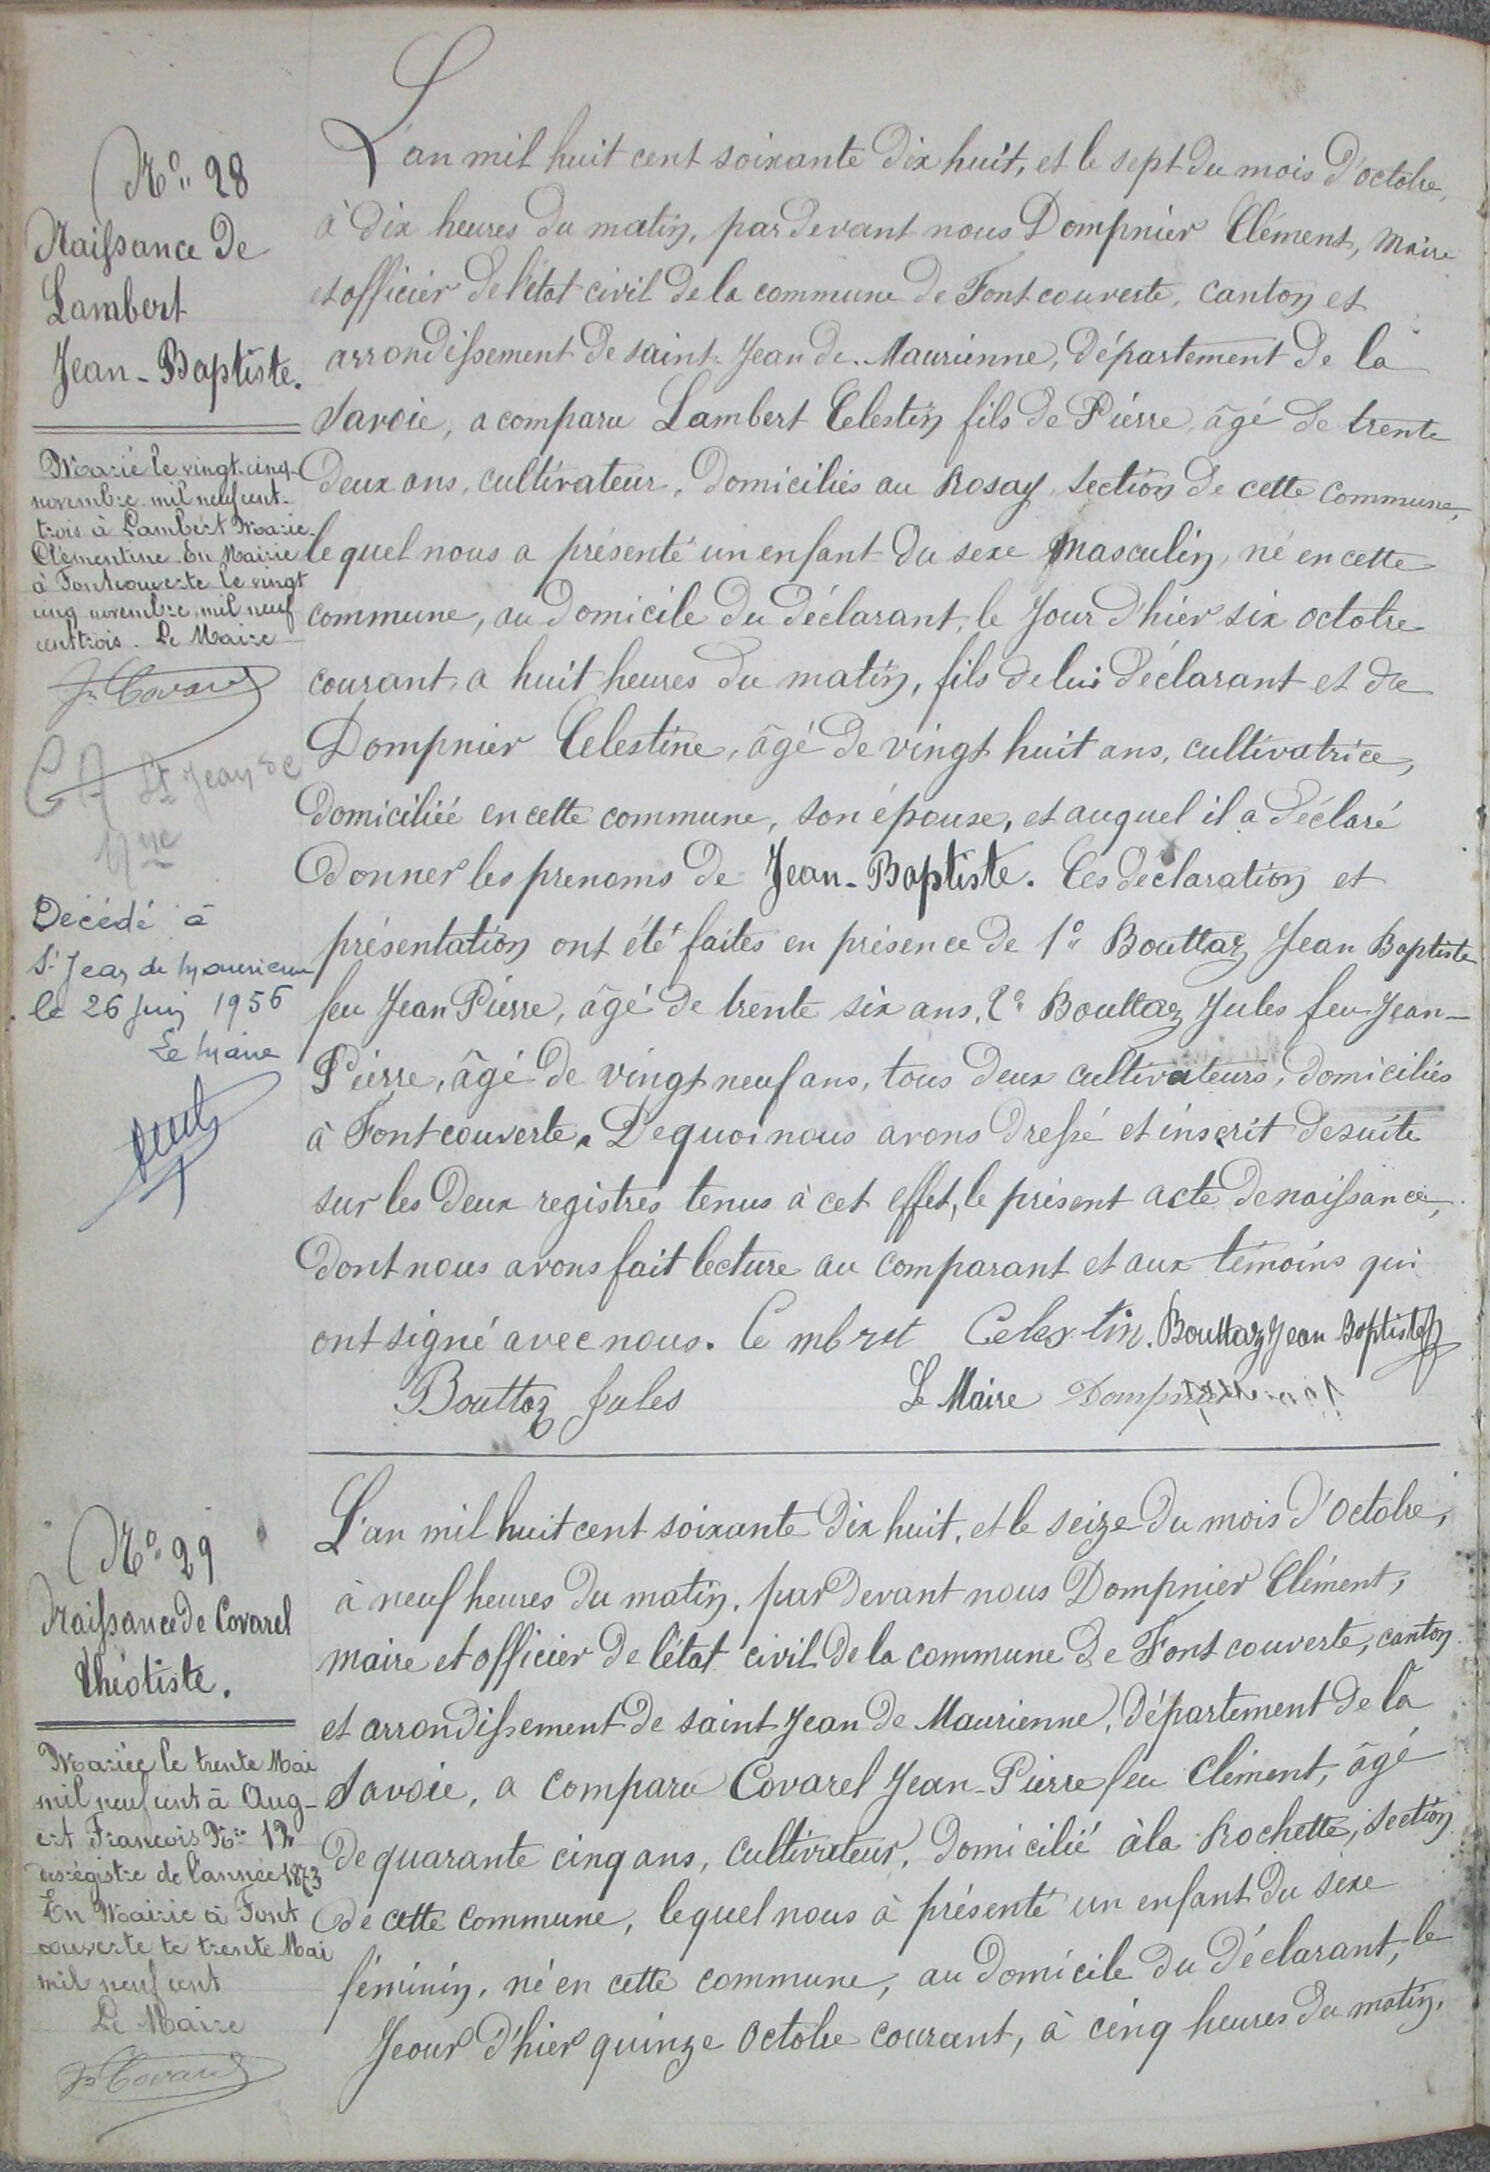 Nº 28
Naissance de
Lambert
Jean-Baptiste.
Marié le vingt-cinq
novembre mil neuf cent-
trois à Lambert Marie-
Clémentine. En Mairie
à Fontcouverte le vingt
cinq novembre mil neuf
cent trois. Le Maire
J. Covarel
St Jean de
Mne
Décédé à
St Jean de Maurienne
le 26 Juin 1956
Le Maire
L'an mil huit cent soixante dix huit, et le sept du mois d'octobre,
à dix heures du matin, par devant nous Dompnier Clément, maire
et officier de l'état civil de la commune de Fontcouverte, canton et
arrondissement de saint-Jean de-Maurienne, département de la
Savoie, a comparu Lambert Celestin fils de Pierre, âgé de trente
deux ans, cultivateur, domiciliés au Rosay, section de cette commune,
le quel nous a présenté un enfant du sexe masculin, né en cette
commune, au domicile du déclarant, le jour d'hier six octobre
courant, a huit heures du matin, fils de lui déclarant et de
Dompnier Celestine, âgé de vingt huit ans, cultivatrice,
domiciliée en cette commune, son épouse, et auquel il a déclaré
donner les prenoms de Jean-Baptiste. Ces déclaration et
présentation ont été faites en présence de 1º Bouttaz Jean Baptiste
feu Jean Pierre, âgé de trente six ans, 2º Bouttaz Jules feu Jean-
Pierre, âgé de vingt neuf ans, tous deux cultivateurs, domiciliés
à Fontcouverte. De quoi nous avons dressé et inscrit de suite
sur les deux registres tenus à cet effet, le présent acte de naissance,
dont nous avons fait lecture au comparant et aux témoins qui
ont signé avec nous. Lembret Celestin. Bouttaz Jean Baptiste
Bouttaz Jules Le Maire Dompnier
Nº 29
Naissance de Covarel
théotiste.
Mariée le trente Mai
mil neuf cent à Aug-
ert François Nº 12
des régistre de l'année 1873
En Mairie à Font
couverte le trente Mai
mil neuf cent
Le Maire
J. Covarel
L'an mil huit cent soixante dix huit, et le seize du mois d'octobre,
à neuf heures du matin, par devant nous Dompnier Clément,
maire et officier de l'état civil de la commune de Font couverte, canton
et arrondissement de saint Jean de Maurienne, département de la
Savoie, a comparu Covarel Jean-Pierre feu Clément, âgé
de quarante cinq ans, cultivateur, domicilié à la Rochette, section
de cette commune, lequel nous à présenté un enfant du sexe
féminin, né en cette commune, au domicile du déclarant, le
Jeour d'hier quinze octobre courant, à cinq heures du matin,